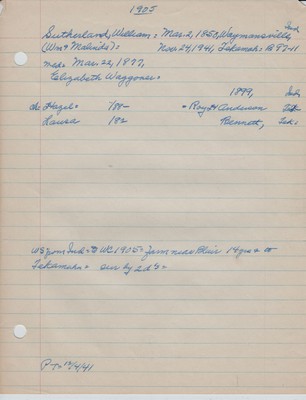 1905
Ind.
Sutherland, William: Mar. 2, 1850, Waymansville,
(Wm & Malinda): Nov. 24, 1941, Tekamah: @ 97-11
md: Mar. 22, 1877,
Elizabeth Waggoner.
1899, Ind.
ch: Hazel= 188- = Roy H Anderson
Laura 192 Bennett, Tek:
WS from Ind. to WC 1905= farm near Blair 14 yrs to
Tekamah= sur by 2 ds=
P T= 12/4/41